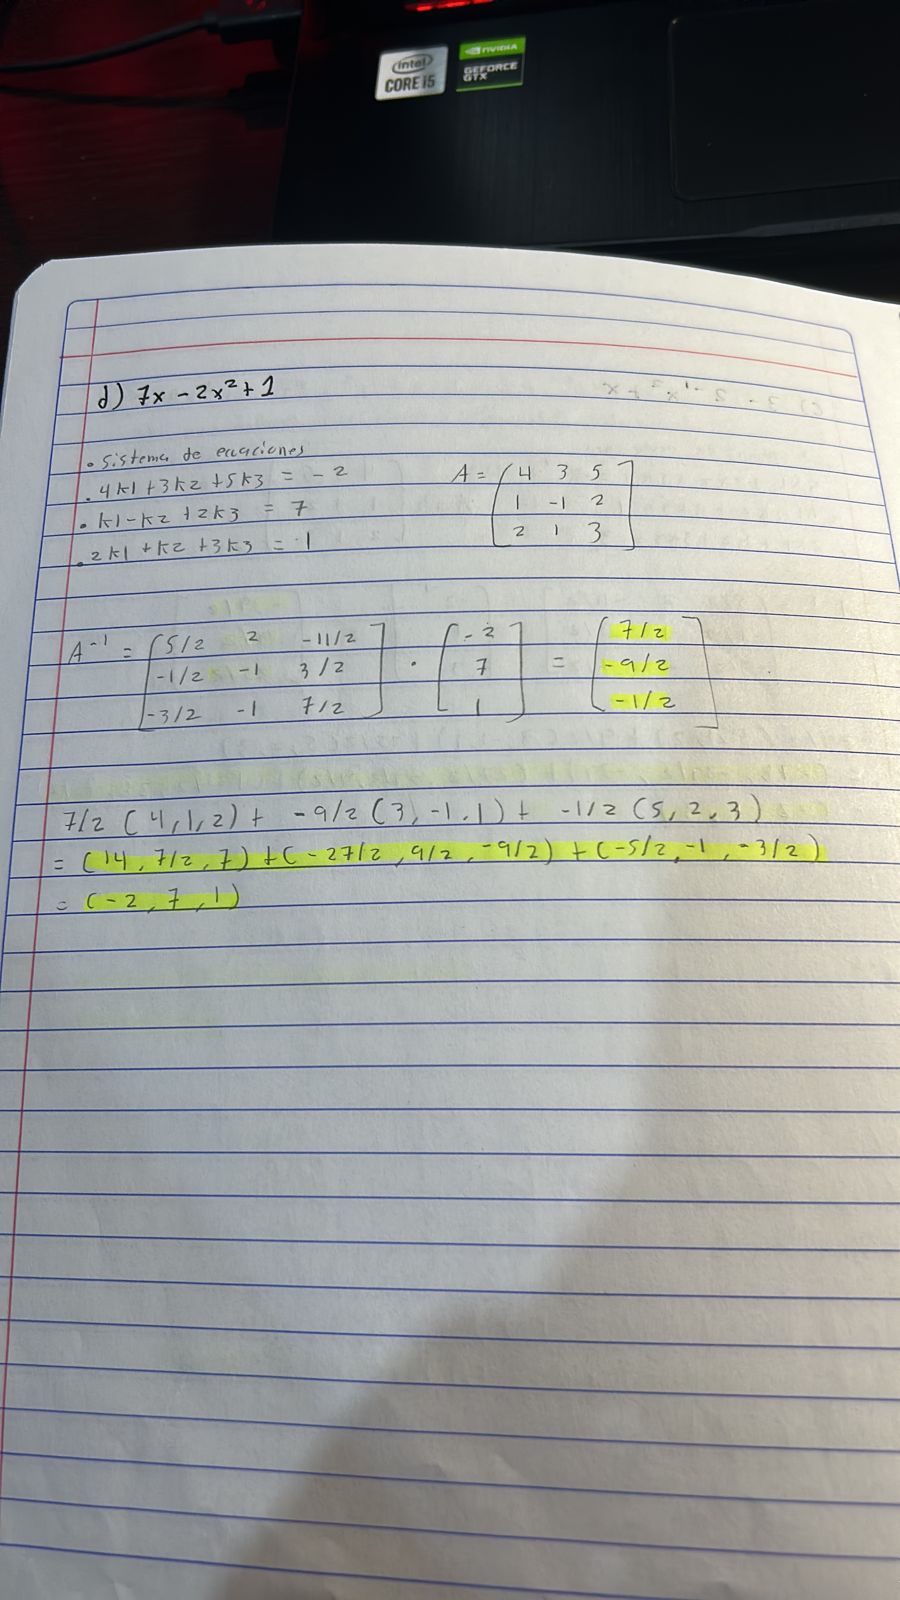 intel
CORE i5
NVIDIA
GEFORCE
GTX
d) 7x - 2x² + 1
• Sistema de ecuaciones
• 4k1 + 3k2 + 5k3 = -2
• k1 - k2 + 2k3 = 7
• 2k1 + k2 + 3k3 = 1
A = [4 3 5
1 -1 2
2 1 3]
A⁻¹ = [5/2 2 -11/2
-1/2 -1 3/2
-3/2 -1 7/2]
· [-2
7
1]
= [7/2
-9/2
-1/2]
7/2 (4,1,2) + -9/2 (3,-1,1) + -1/2 (5,2,3)
= (14, 7/2, 7) + (-27/2, 9/2, -9/2) + (-5/2, -1, -3/2)
= (-2, 7, 1)